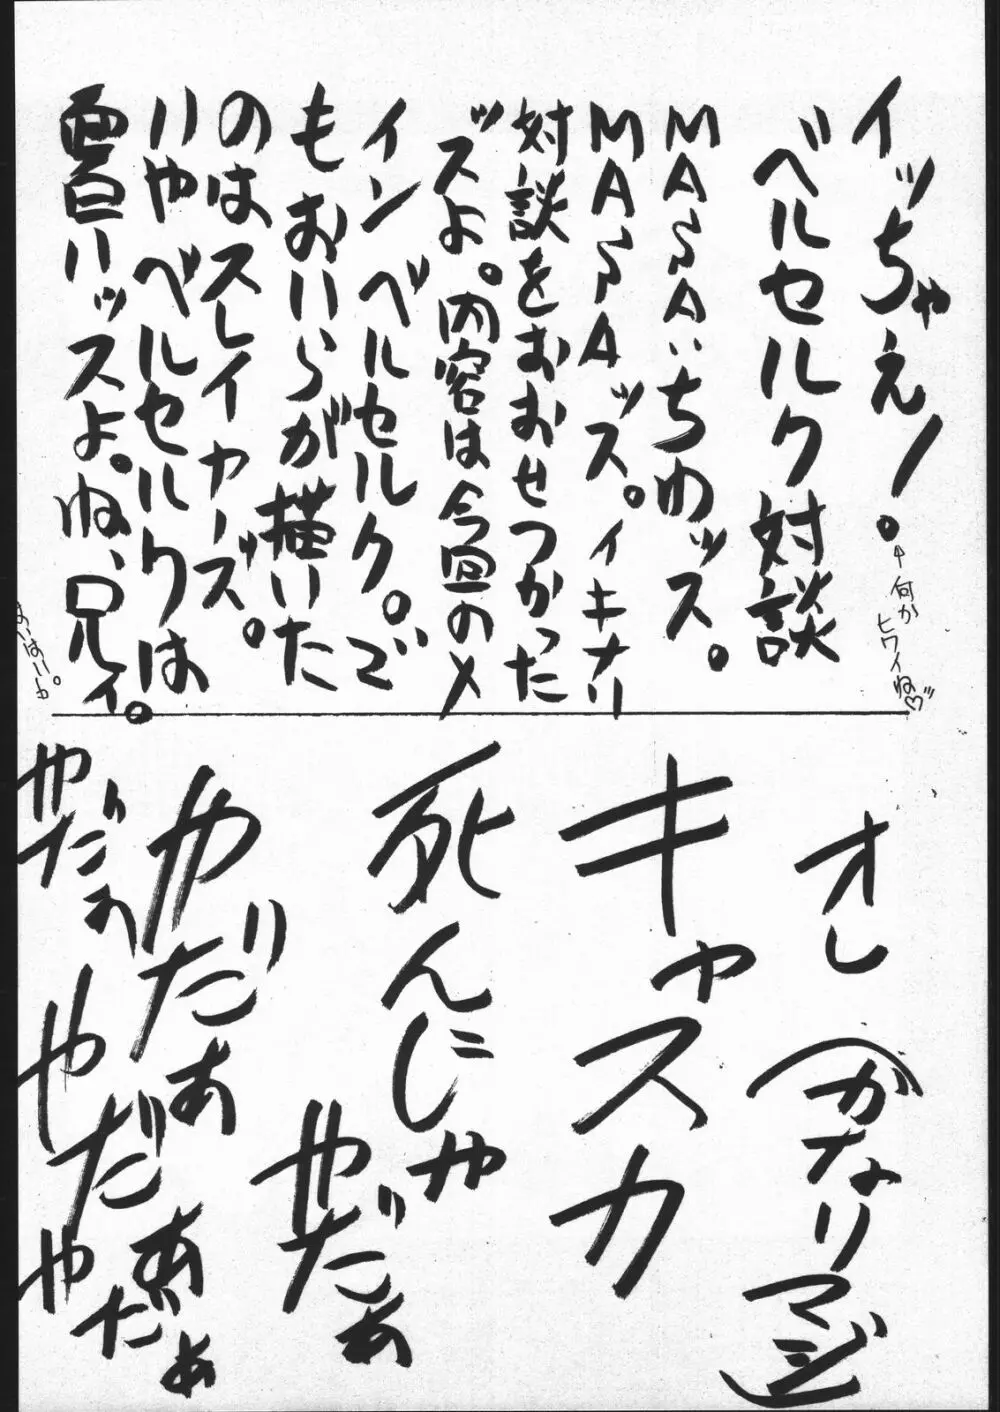 イッちゃえ!
←何かヒワイね♡
ベルセルク対談
MASAいちゅッス。
MASAッス。イキナリ
対談をおおせつかった
ッスよ。内容は今回のメ
イン ベルセルク。で
もおいらが描いた
のはスレイヤーズ。
いや ベルセルクは、
面白いッスよ。ね、兄ィ。
オレ(かなりマジ)
キャスカ
死んじゃ
やだぁ
やだぁ
やだぁ
やだぁあ
やだぁ